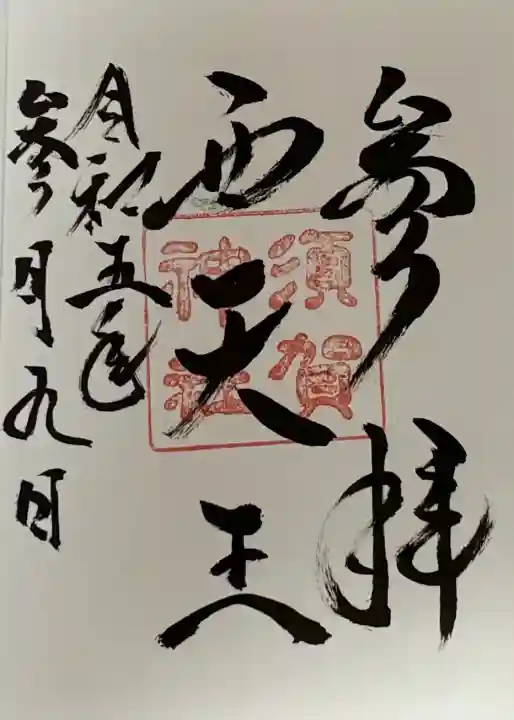 参拝
西天王
須賀
神社
令和五年
参月九日